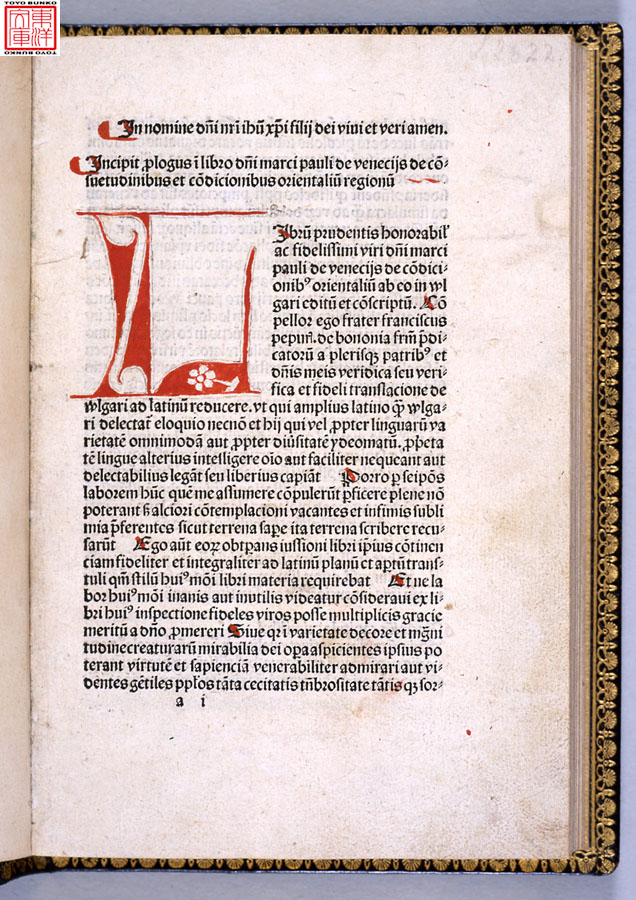 TOYO BUNKO
東洋文庫
TOYO BUNKO
In nomine dn̄i nr̄i ihū xp̄i filij dei viui et veri amen.
Incipit ꝓlogus ī libro dn̄i marci pauli de venecijs de cō⸗
suetudinibus et cōdicionibus orientaliū regionū
LIbrū prudentis honorabil'
ac fidelissimi viri dn̄i marci
pauli de venecijs de cōdici⸗
onibꝰ orientaliū ab eo in wl
gari editū et cōscriptū. Cō
pellor ego frater franciscus
pepur̄. de bononia frm̄ p̄di⸗
catorū a plerisqꝫ patribꝰ et
dn̄is meis veridica seu veri⸗
fica et fideli translacione de
wlgari ad latinū reducere. vt qui amplius latino qͣ̄ wlga⸗
ri delectant᷑ eloquio necnō et hij qui vel ꝓpter linguarū va
rietatē omnimodā aut ꝓpter diūsitatē ydeomatū. ꝓp̄heta
tē lingue alterius intelligere oīo aut faciliter nequeant aut
delectabilius legāt seu liberius capiāt Porro ꝑ seip̄os
laborem hūc quē me assumere cōpulerūt ꝑficere plene nō
poterant sꝫ alciori cōtemplacioni vacantes et infimis subli
mia p̄ferentes sicut terrena sape ita terrena scribere recu⸗
sarūt Ego aūt eoꝝ obtꝑans iussioni libri ip̄ius cōtinen
ciam fideliter et integraliter ad latinū planū et aꝑtū trans⸗
tuli qm̄ stilū huiꝰ mōi libri materia requirebat Et ne la
bor huiꝰ mōi inanis aut inutilis videatur cōsideraui ex li⸗
bri huiꝰ inspectione fideles viros posse multiplicis gracie
meritū a dn̄o ꝓmereri Siue qꝛ ī varietate decore et mg̅ni
tudine creaturarū mirabilia dei oꝑa aspicientes ipsius po
terant virtutē et sapienciā venerabiliter admirari aut vi⸗
dentes gētiles ppl̄os tāta cecitatis tn̄brositate tātis qꝫ sor⸗
a i